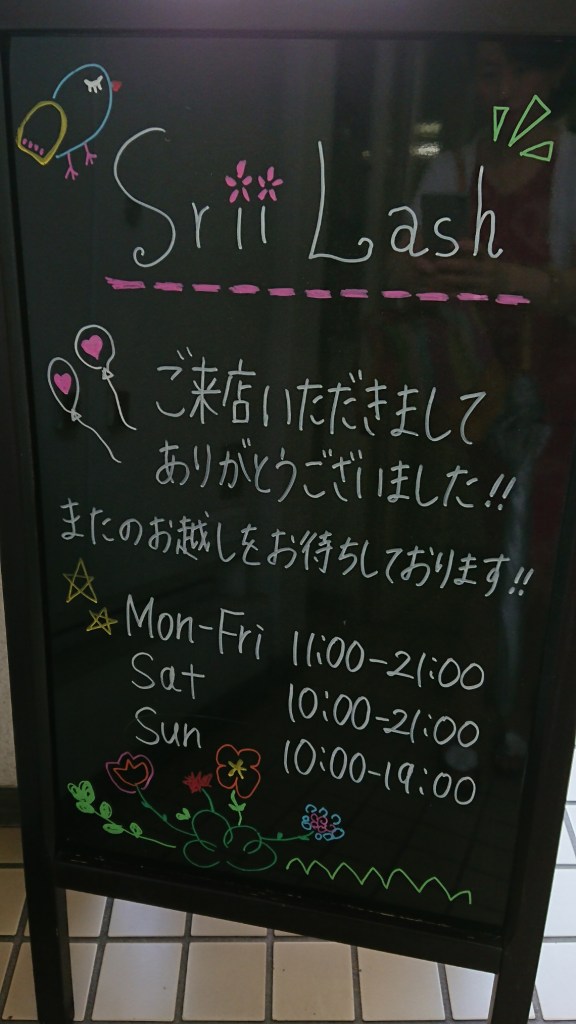 Srii Lash
ご来店いただきまして
ありがとうございました!!
またのお越しをお待ちしております!!
Mon-Fri 11:00-21:00
Sat 10:00-21:00
Sun 10:00-19:00